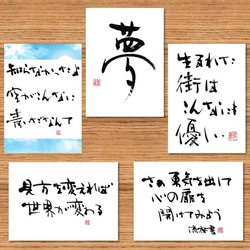 知らなかったよ
空がこんなに
青いだなんて
夢
生まれた
街は
こんなにも
優しい
見方を変えれば
世界が変わる
さあ勇気を出して
心の扉を
開けてみよう